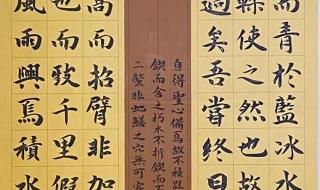 而青於藍冰水
輮使之然也故
過矣吾嘗終日
自得聖心備焉故不積跬
鍥而舍之朽木不折鍥而不
二螯非蛇鱔之穴無可寄
高而招臂非加
也而致千里假
風雨興焉積水